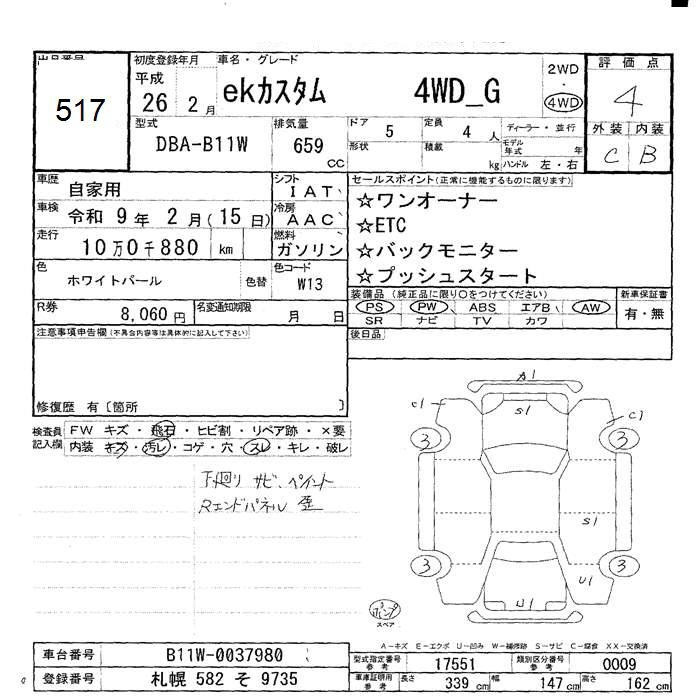 出品番号
517
初度登録年月 車名・グレード
平成 26 2月
ekカスタム 4WD_G
2WD ・ 4WD
評価点
4
外装 内装
C B
型式 DBA-B11W
排気量 659 CC
ドア 5 定員 4 人
形状 積載 kg
ディーラー・並行
モデル年式 年
ハンドル 左・右
車歴 自家用
シフト IAT
車検 令和 9年 2月(15日)
冷房 AAC
走行 10万0千880 km
燃料 ガソリン
色 ホワイトパール 色替
色コード W13
R券 8,060円
名変通知期限 月 日
セールスポイント(正常に機能するものに限ります)
☆ワンオーナー
☆ETC
☆バックモニター
☆プッシュスタート
装備品(純正品に限り○をつけてください) 新車保証書
PS PW ABS エアB AW 有・無
SR ナビ TV カワ
後日品
注意事項申告欄(不具合内容等は具体的に記入して下さい)
修復歴 有〔箇所 〕
検査員記入欄
FW キズ・飛石・ヒビ割・リペア跡・×要
内装 キズ・汚レ・コゲ・穴・スレ・キレ・破レ
下廻り サビ、ペイント
Rエンドパネル 歪
A1
C1 S1 C1
3 3
S1
3 3
U1
U1
スペア
A-キズ E-エクボ U-凹み W-補修跡 S-サビ C-腐食 XX-交換済
車台番号 B11W-0037980
登録番号 札幌 582 そ 9735
型式指定番号 参考 17551 類別区分番号 参考 0009
車庫証明用 参考 長さ 339 cm 幅 147 cm 高さ 162 cm